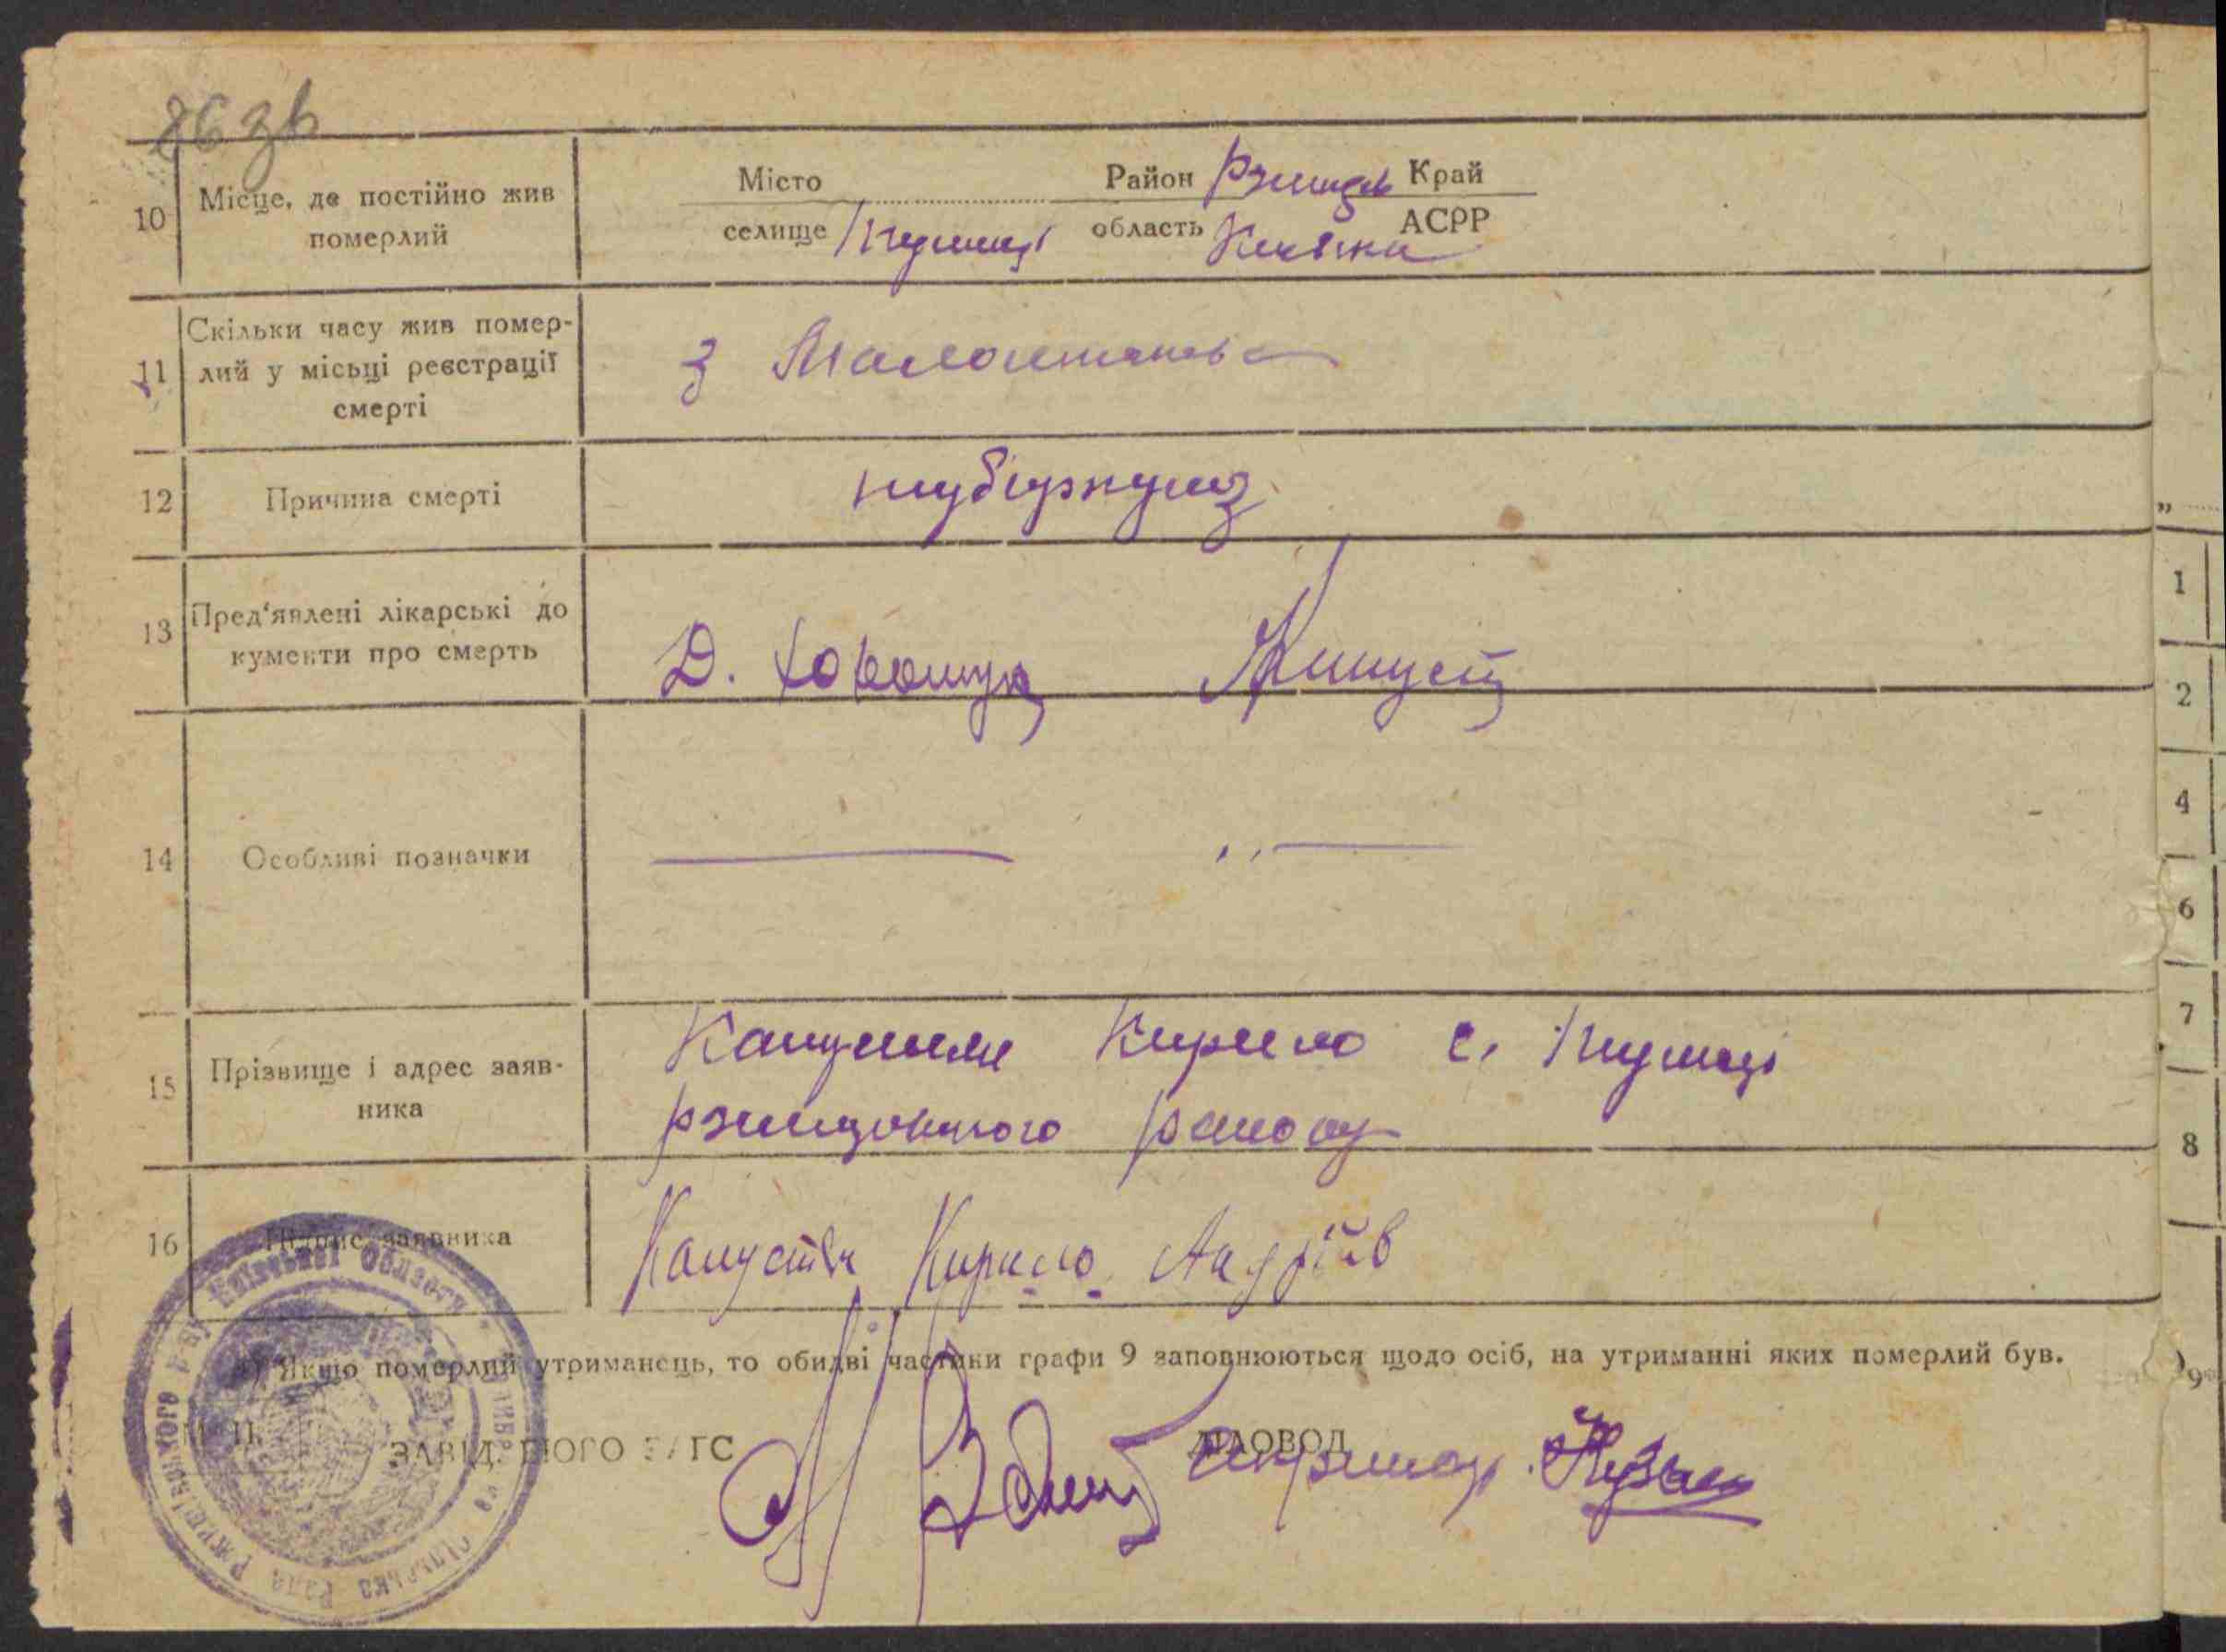 86 зв
10 Місце, де постійно жив померлий
Місто Район Ржищів Край
селище Пушчі область Київська АСРР
11 Скільки часу жив помер-
лий у місьці реєстрації
смерті
з Малолітства
12 Причина смерті
тубіркулоз
13 Пред'явлені лікарські до
кументи про смерть
Д.
14 Особливі позначки
15 Прізвище і адрес заяв-
ника
Капустян Кирило с.
ржищівського району
16 Підпис заявника
Капустян Кирило Андріїв
*) Якщо померлий утриманець, то обидві частини графи 9 заповнюються щодо осіб, на утриманні яких померлий був.
М. П.
ЗАВІД. БЮРО ЗАГС
ДІЛОВОД
Київської Области
сільська Рада
"
1
2
4
6
7
8
9